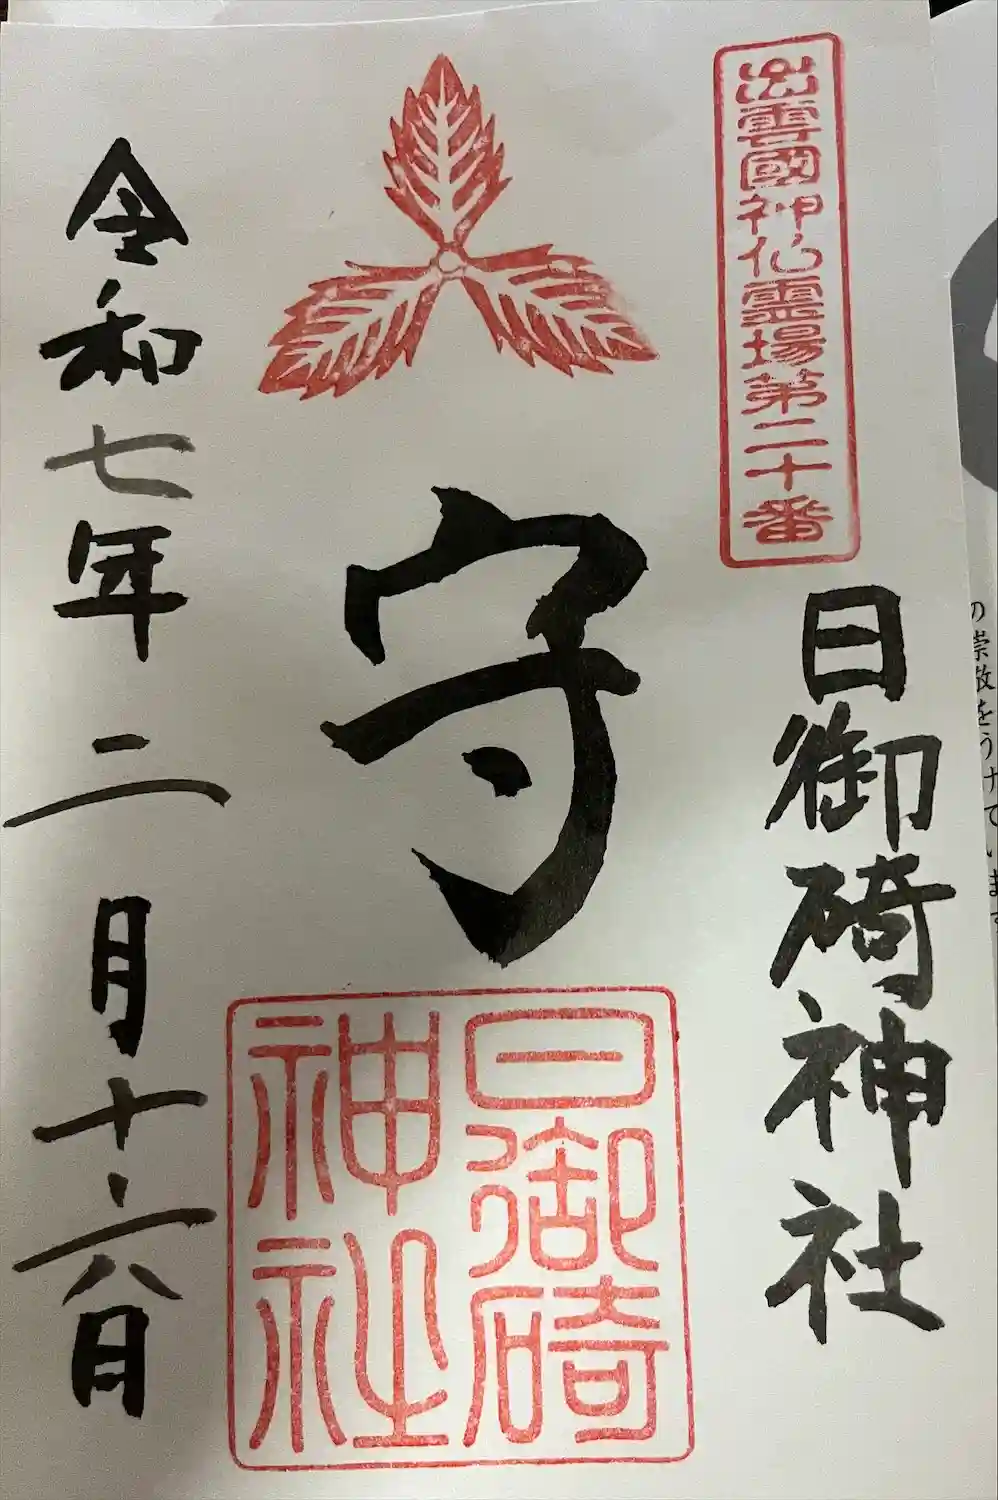 の崇敬をうけています
出雲國神仏霊場第二十番
日御碕神社
守
日御碕
神社
令和七年二月十六日